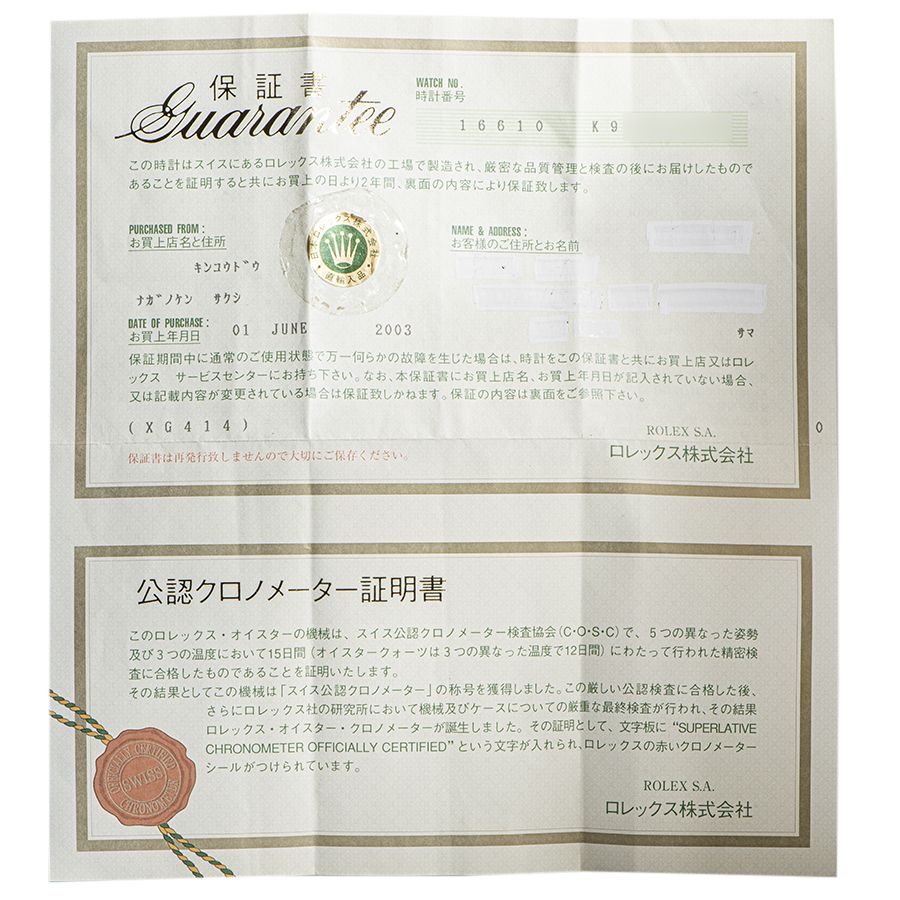 保証書
Guarantee
WATCH NO. :
時計番号
16610 K9
この時計はスイスにあるロレックス株式会社の工場で製造され、厳密な品質管理と検査の後にお届けしたもので
あることを証明すると共にお買上の日より2年間、裏面の内容により保証致します。
PURCHASED FROM :
お買上店名と住所
キンコウドウ
ナガノケン サクシ
日本ロレックス株式会社
・直輸入品・
NAME & ADDRESS :
お客様のご住所とお名前
サマ
DATE OF PURCHASE :
お買上年月日
01 JUNE 2003
保証期間中に通常のご使用状態で万一何らかの故障を生じた場合は、時計をこの保証書と共にお買上店又はロレ
ックス サービスセンターにお持ち下さい。なお、本保証書にお買上店名、お買上年月日が記入されていない場合、
又は記載内容が変更されている場合は保証致しかねます。保証の内容は裏面をご参照下さい。
(XG414)
0
ROLEX S.A.
ロレックス株式会社
保証書は再発行致しませんので大切にご保存ください。
公認クロノメーター証明書
このロレックス・オイスターの機械は、スイス公認クロノメーター検査協会(C・O・S・C)で、5つの異なった姿勢
及び3つの温度において15日間(オイスタークォーツは3つの異なった温度で12日間)にわたって行われた精密検
査に合格したものであることを証明いたします。
その結果としてこの機械は「スイス公認クロノメーター」の称号を獲得しました。この厳しい公認検査に合格した後、
さらにロレックス社の研究所において機械及びケースについての厳重な最終検査が行われ、その結果
ロレックス・オイスター・クロノメーターが誕生しました。その証明として、文字板に “SUPERLATIVE
CHRONOMETER OFFICIALLY CERTIFIED” という文字が入れられ、ロレックスの赤いクロノメーター
シールがつけられています。
OFFICIALLY CERTIFIED
SWISS
CHRONOMETER
ROLEX S.A.
ロレックス株式会社